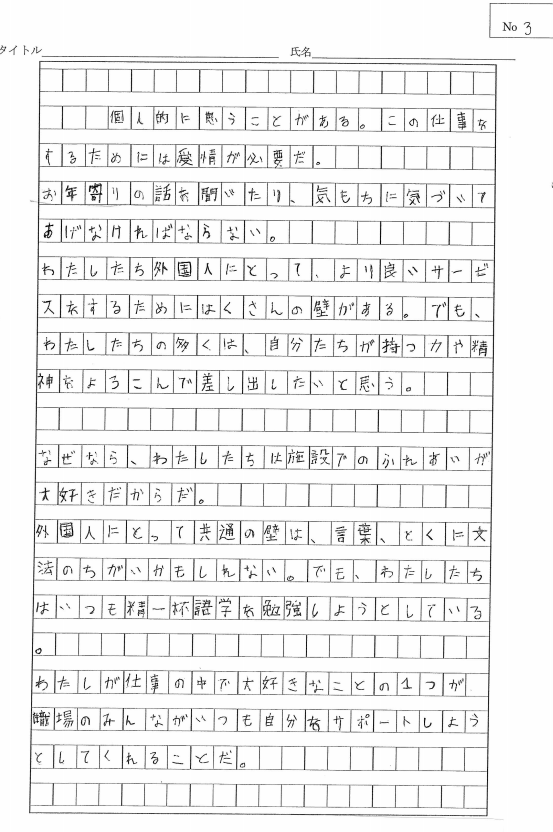 No 3
タイトル 氏名
個人的に思うことがある。この仕事を
するためには愛情が必要だ。
お年寄りの話を聞いたり、気もちに気づいて
あげなければならない。
わたしたち外国人にとって、より良いサービ
スをするためにはくさんの壁がある。でも、
わたしたちの多くは、自分たちが持つ力や精
神をよろこんで差し出したいと思う。
なぜなら、わたしたちは施設でのふれあいが
大好きだからだ。
外国人にとって共通の壁は、言葉、とくに文
法のちがいかもしれない。でも、わたしたち
はいつも精一杯語学を勉強しようとしている
。
わたしが仕事の中で大好きなことの1つが
職場のみんながいつも自分をサポートしよう
としてくれることだ。